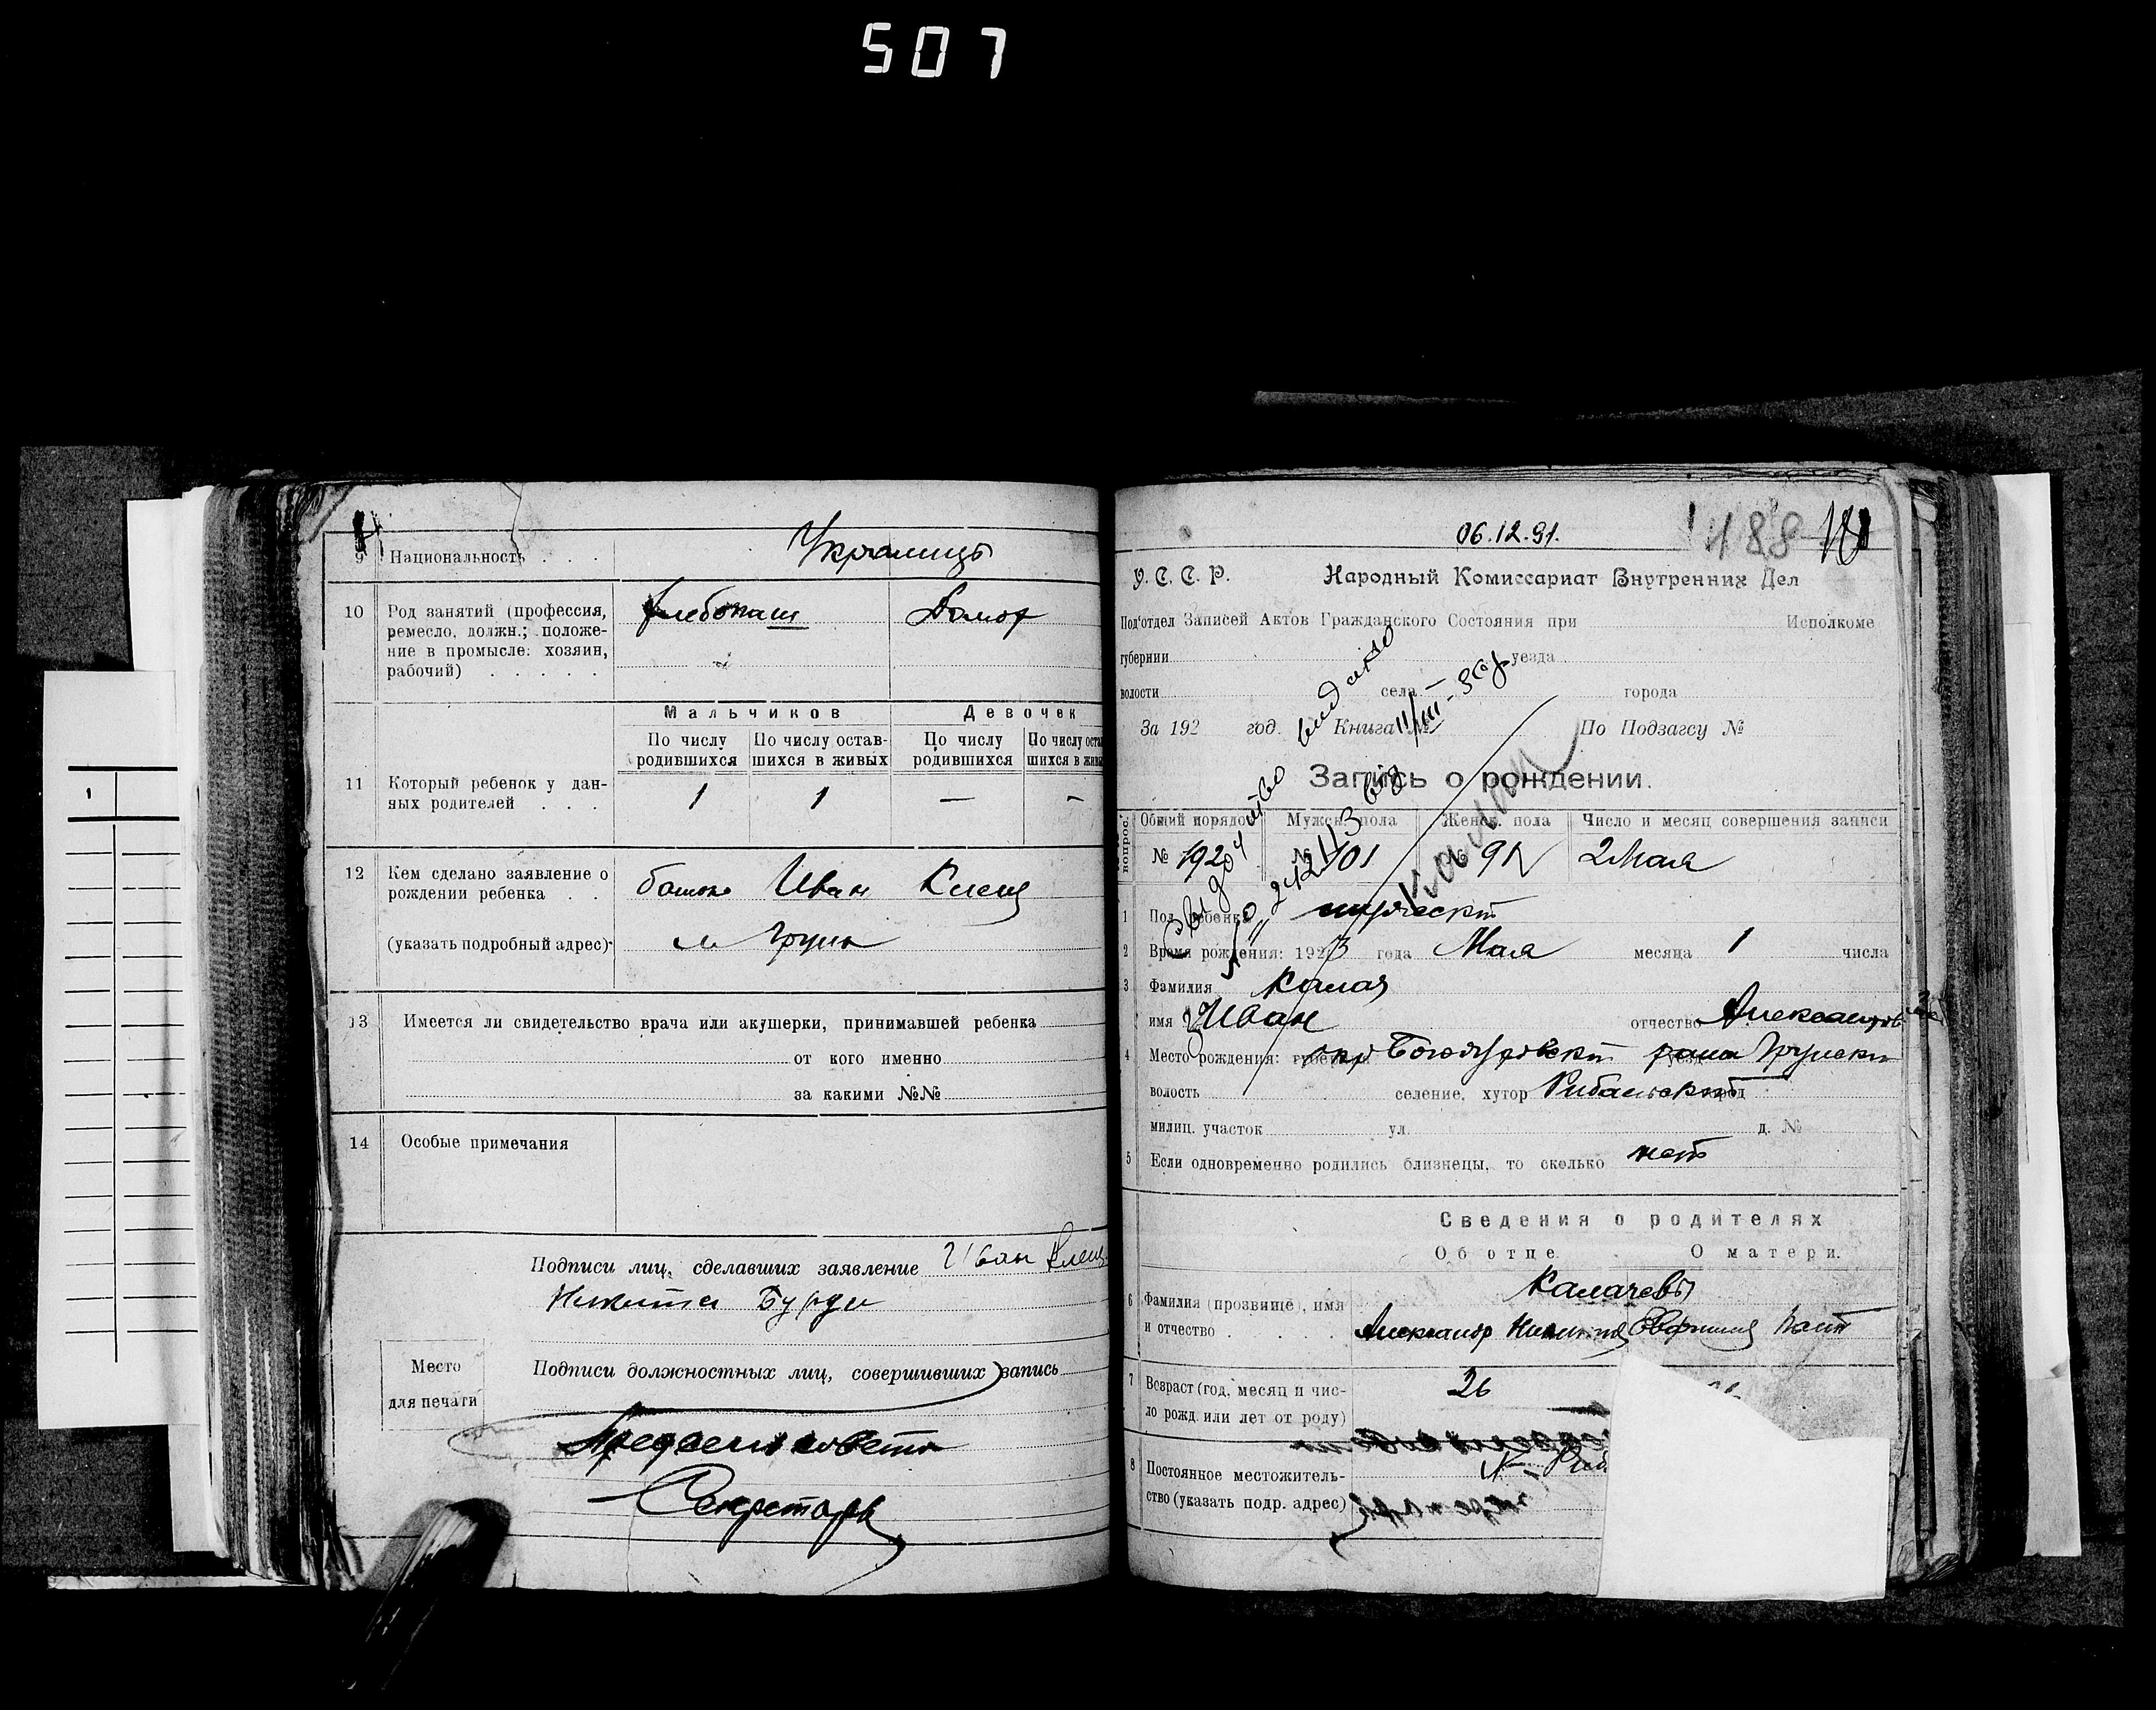 507
9 Национальность . . . Украинцы
10 Род занятий (профессия, ремесло, должн.; положе-
ние в промысле: хозяин,
рабочий) . . . . .
Хлебопаш Домох
Мальчиков Девочек
По числу родившихся По числу остав-шихся в живых По числу родившихся По числу оста шихся в живы
11 Который ребенок у дан-
ных родителей . . . 1 1 — -
12 Кем сделано заявление о
рождении ребенка . . батько Иван Клещ
(указать подробный адрес). м Грунь
13 Имеется ли свидетельство врача или акушерки, принимавшей ребенка
от кого именно
за какими №№
14 Особые примечания
Подписи лиц, сделавших заявление Иван Клещ
Никита
Место
для печати
Подписи должностных лиц, совершивших запись
Секретарь
06.12.91.
188
У. С. С. Р. Народный Комиссариат Внутренних Дел
Под'отдел Записей Актов Гражданского Состояния при Исполкоме
губернии уезда
волости села города
За 192 год. Книга № По Подзагсу №
Запись о рождении.
вопрос. Общий порядо Мужск. пола Женск. пола Число и месяц совершения записи
№ 192 № 101 № 91 2 Мая
1 Пол ребенка
2 Время рождения: 1923 года Мая месяца 1 числа
3 Фамилия Калач
имя Иван отчество Александров
4 Место рождения: губерн окр Богодуховск уезд район Грунськ
волость селение, хутор город
милиц. участок ул. д. №
5 Если одновременно родились близнецы, то сколько нет
Сведения о родителях
Об отце. О матери.
6 Фамилия (прозвище), имя
и отчество . . . . . Калачевы
Александр
7 Возраст (год, месяц и чис-
ло рожд. или лет от роду) 26
8 Постоянное местожитель-
ство (указать подр. адрес)
1